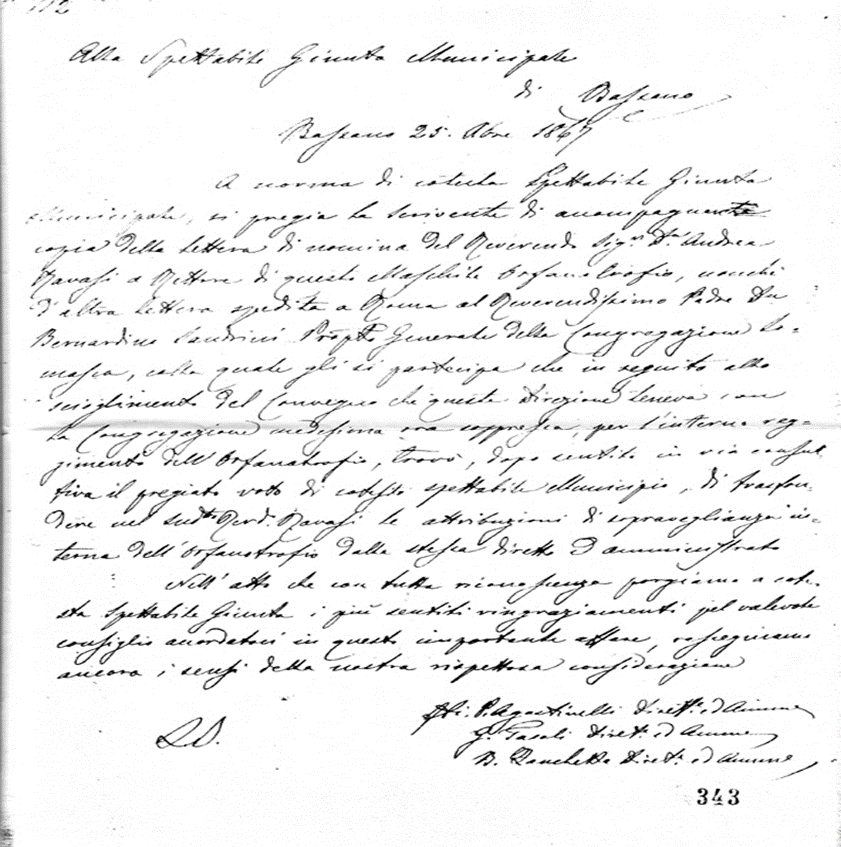 112
Alla Spettabile Giunta Municipale
di Bassano
Bassano 25. Abre 1867
A norma di cotesta Spettabile Giunta
Municipale, si pregia la scrivente di accompagnare
copia della lettera di nomina del Reverendo Sigr. Dn. Andrea
Ravasi a Rettore di questo Maschile Orfanotrofio, nonchè
d'altra lettera spedita a Roma al Reverendissimo Padre Dn
Bernardino Sandrini Prepto Generale della Congregazione So-
masca, colla quale gli si partecipa che in seguito allo
scioglimento del Convegno che questa Direzione teneva con
la Congregazione medesima ora soppressa, per l'interno reg-
gimento dell'Orfanatrofio, trovò, dopo sentito in via consul-
tiva il pregiato voto di codesto spettabile Municipio, di trasfon-
dere nel sudto Revd. Ravasi le attribuzioni di sopraveglianza in-
terna dell'Orfanotrofio dalla stessa diretto ed amministrato
Nell'atto che con tutta riconoscenza porgiamo a cote-
sta Spettabile Giunta i più sentiti ringraziamenti pel valevole
consiglio accordatoci in questo importante affare, rassegniamo
ancora i sensi della nostra rispettosa considerazione
P. Agostinelli Dirett. ed Ammne
G. Fasoli Diret. ed Ammne
B. Zanchetta Diret. ed Ammne
LD.
343